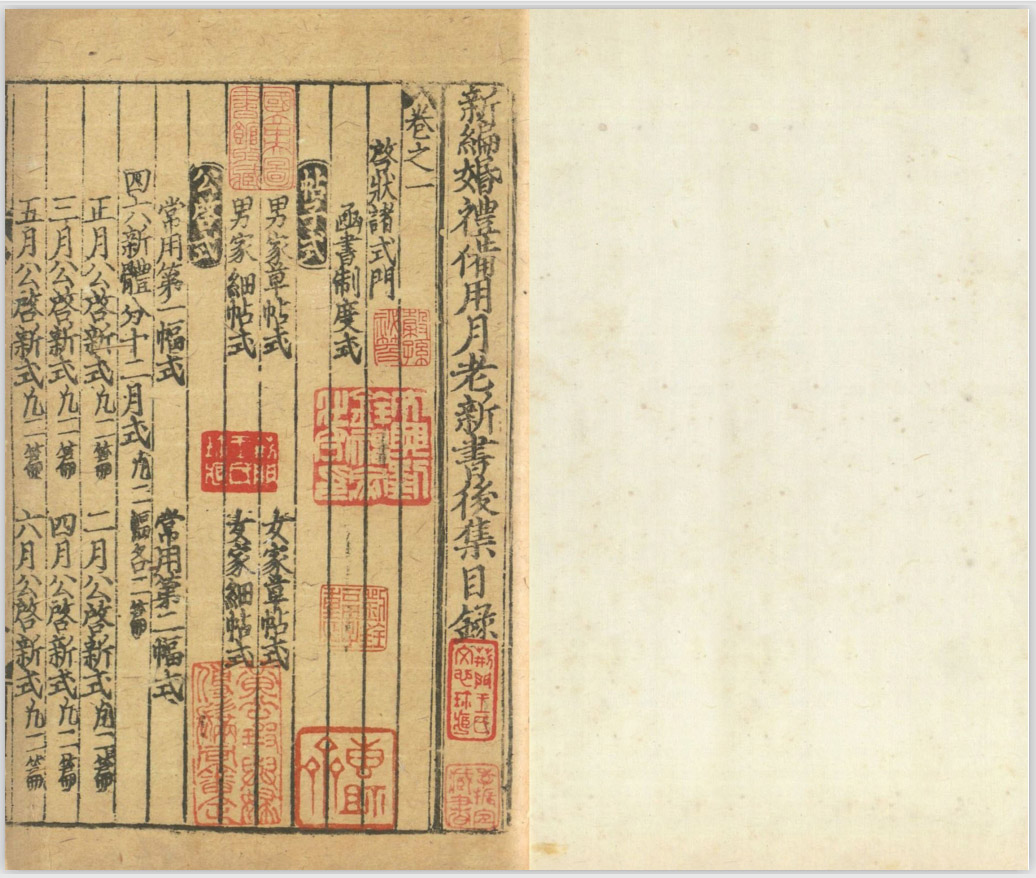 新編婚禮備用月老新書後集目録
卷之一
啓狀諸式門
凾書制度式
帖子式
男家草帖式 女家草帖式
男家細帖式 女家細帖式
公啓式
常用第一幅式 常用第二幅式
四六新體分十二月式凡二幅各二篇
正月公啓新式凡二篇 二月公啓新式凡二篇
三月公啓新式凡二篇 四月公啓新式凡二篇
五月公啓新式凡二篇 六月公啓新式凡二篇
荆門王氏